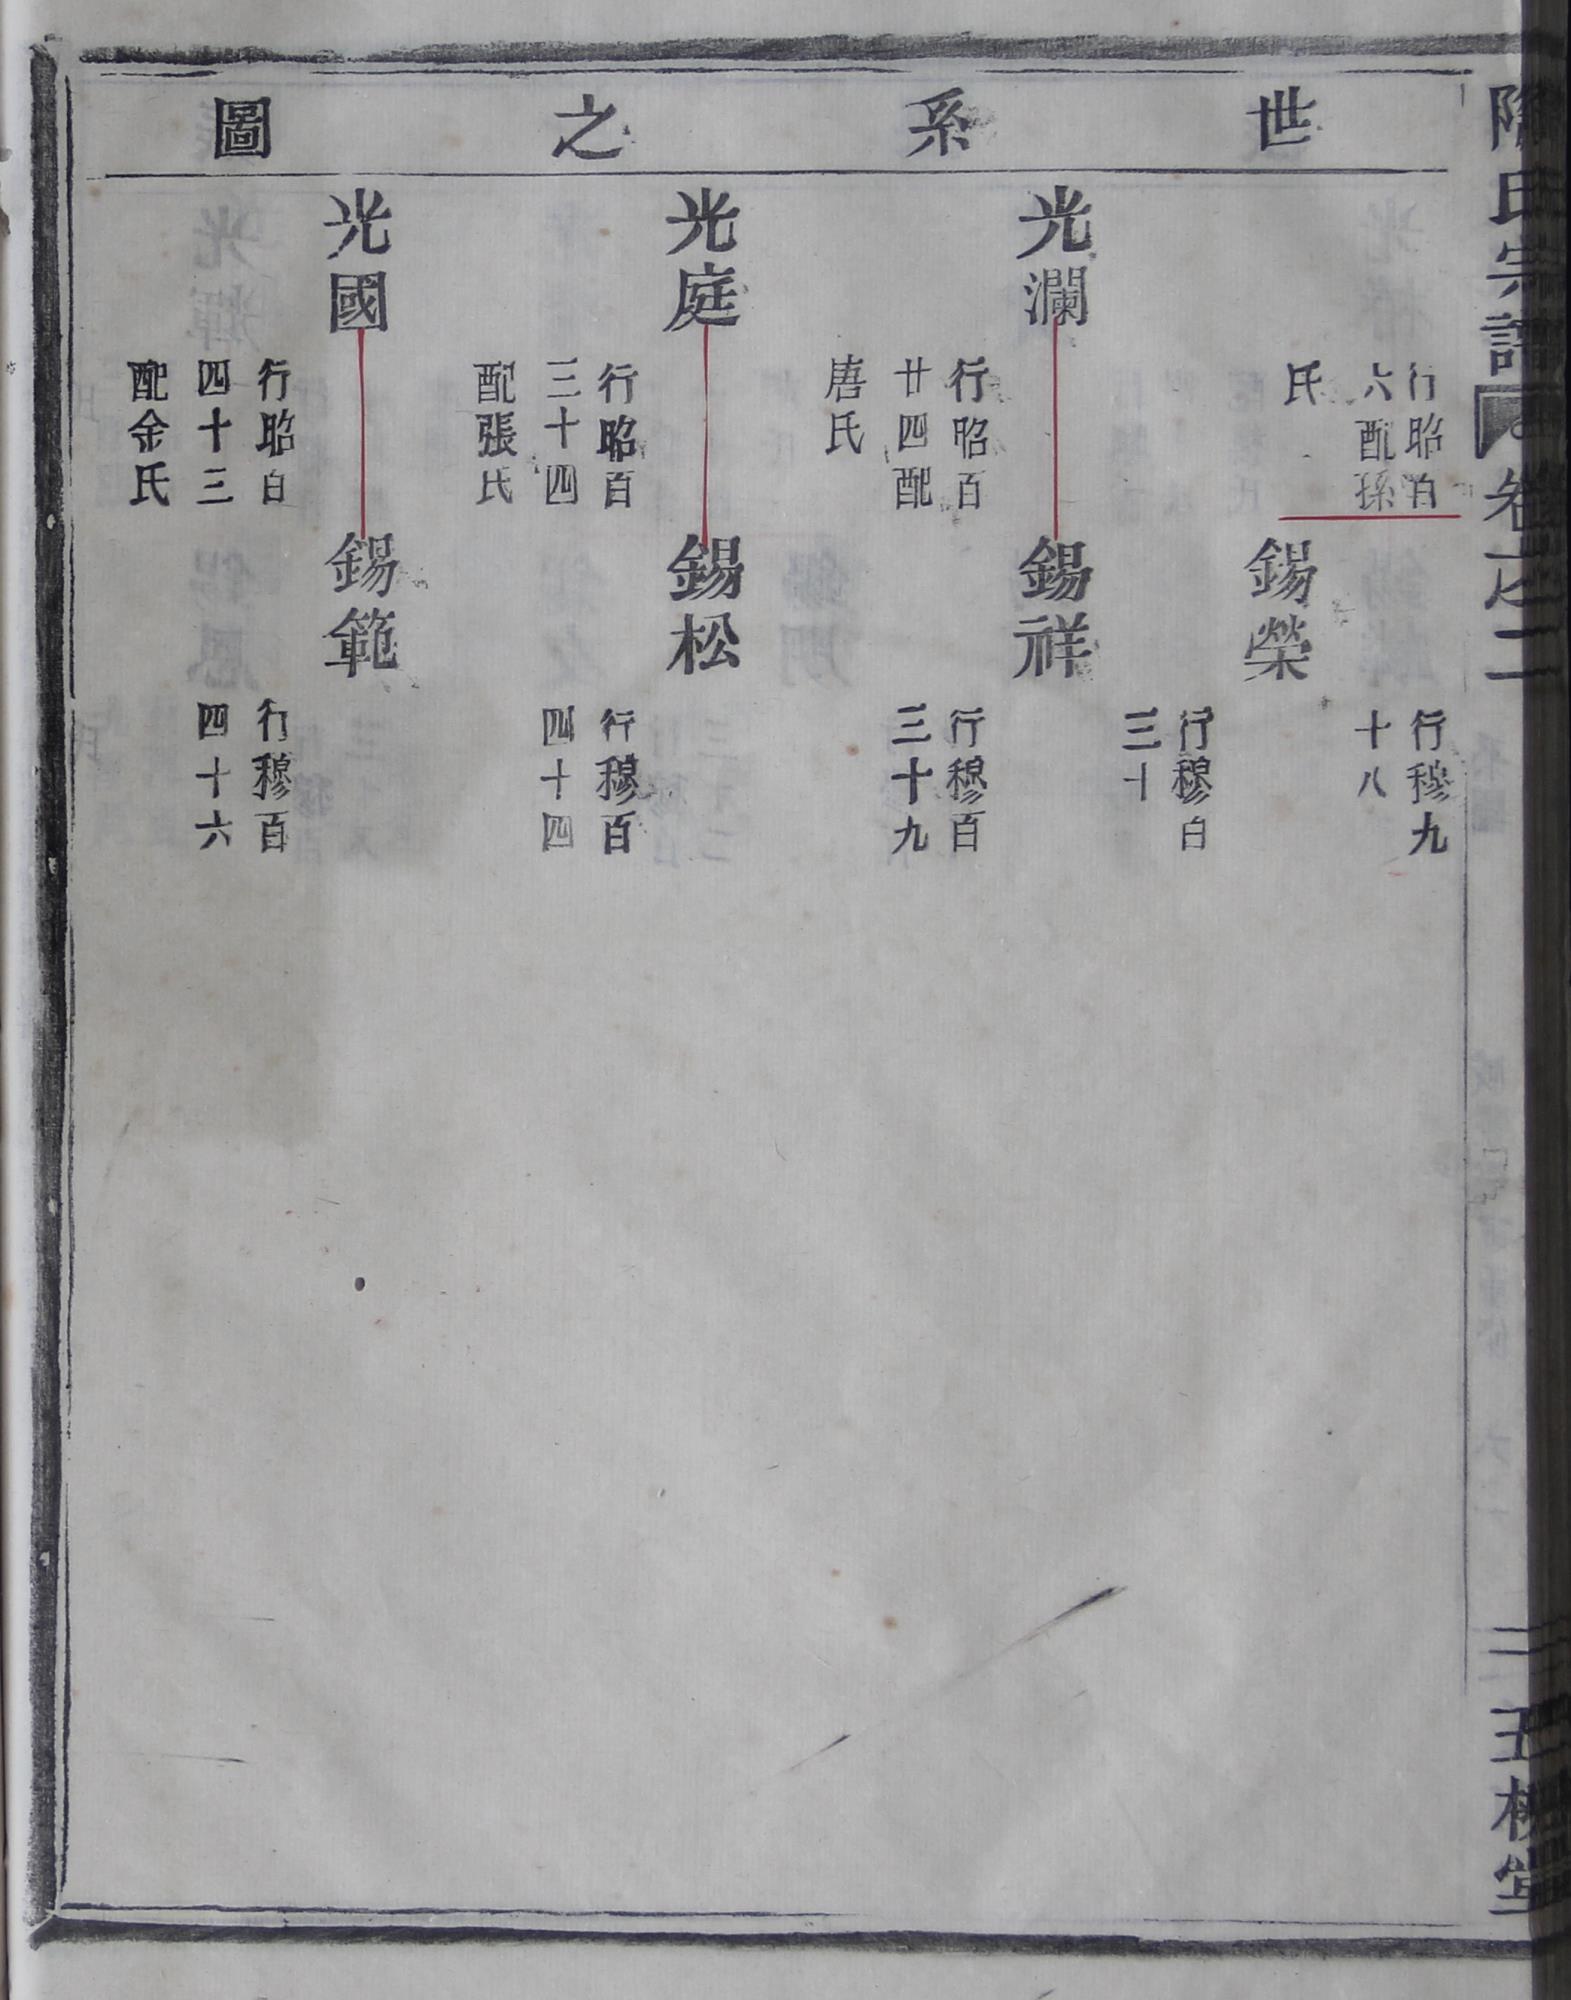 世系之圖
氏宗譜
卷之二
行昭百
六配孫
氏
行穆九
十八
錫榮
行穆百
三十
光瀾
行昭百
廿四配
唐氏
錫祥
行穆百
三十九
光庭
行昭百
三十四
配張氏
錫松
行穆百
四十四
光國
行昭百
四十三
配金氏
錫範
行穆百
四十六